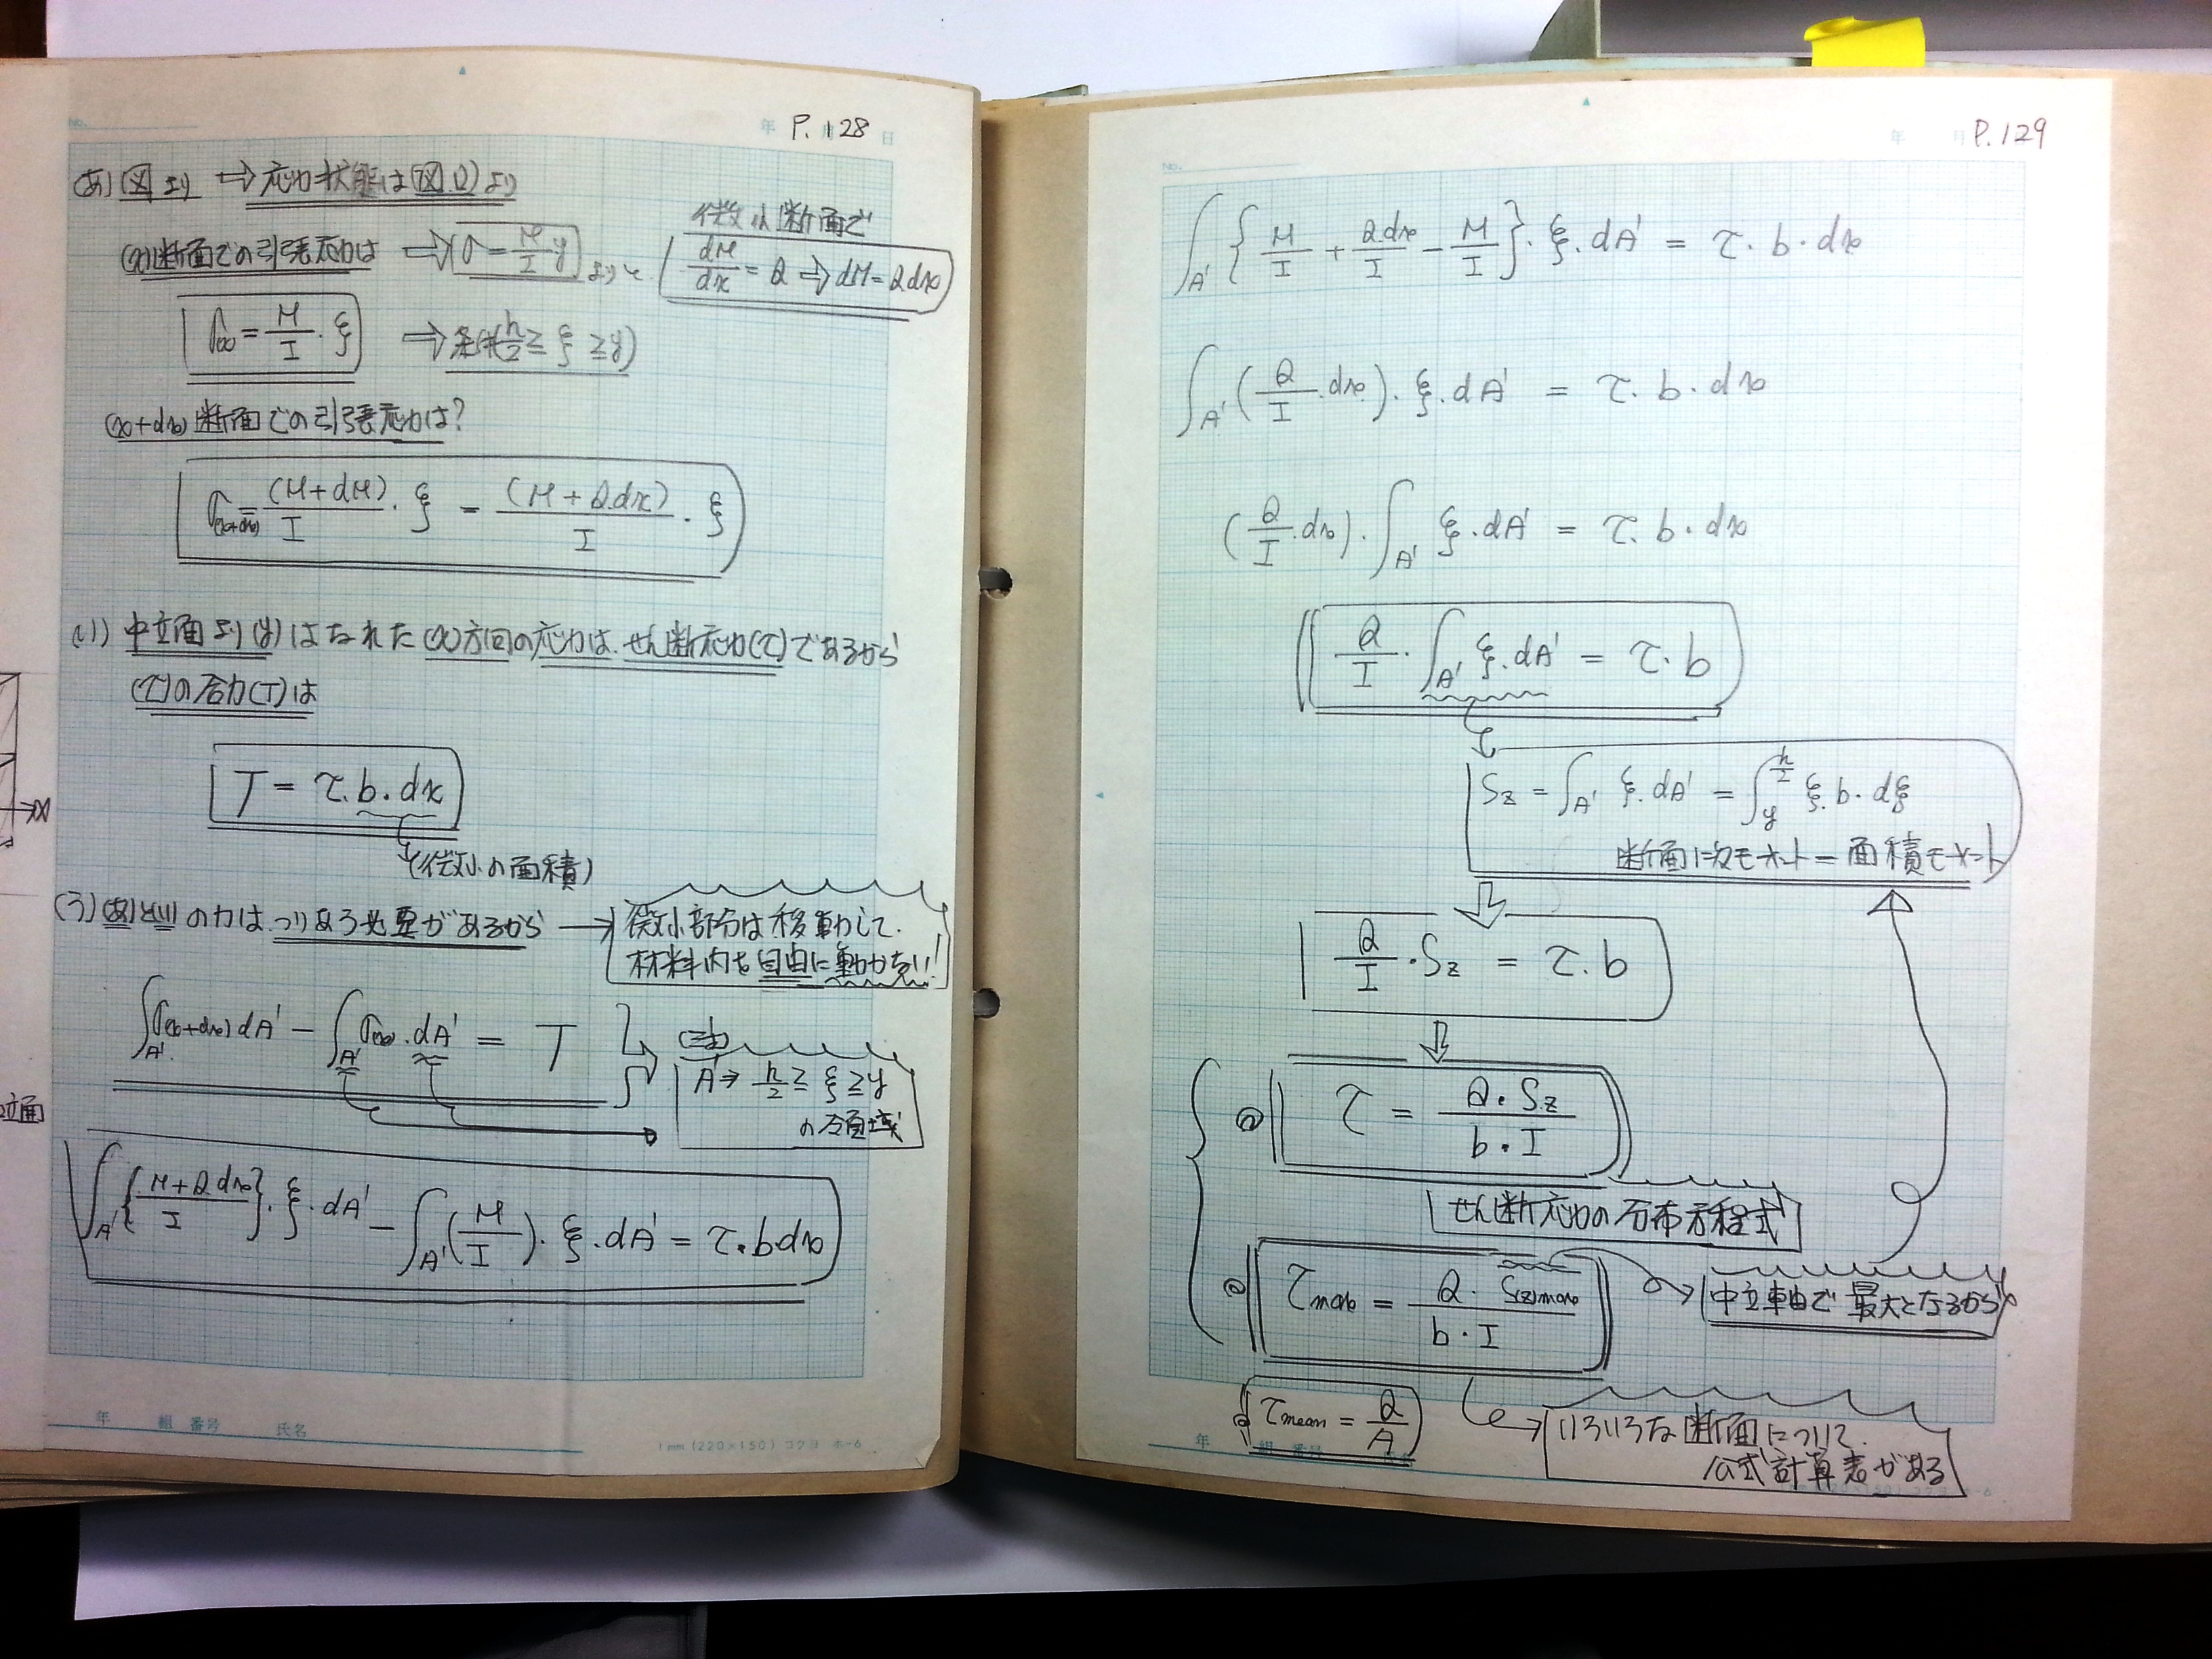 年 P.128 日
No.
(あ) 図より ⇒ 応力状態は(図.2)より
(x)断面での引張応力は ⇒ (σ = M/I y) より、
微小断面で
dM/dx = Q ⇒ dM = Qdx
σ(x) = M/I · ξ ⇒ 条件(h/2 ≧ ξ ≧ y)
(x+dx)断面での引張応力は?
σ(x+dx) = (M+dM)/I · ξ = (M+Qdx)/I · ξ
(い) 中立面より(y)はなれた(x)方向の応力は、せん断応力(τ)であるから
(τ)の合力(T)は
T = τ.b.dx
(微小の面積)
(う) (あ)と(い)の力は、つりあう必要があるから →
微小部分は移動して、
材料内を自由に動かない!
∫A' σ(x+dx) dA' − ∫A' σ(x) · dA' = T
A' ⇒ h/2 ≧ ξ ≧ y
の領域
∫A' {(M+Qdx)/I} · ξ · dA' − ∫A' (M/I) · ξ · dA' = τ · b dx
年 組 番号 氏名
1mm (220×150) コクヨ ホ-6
年 月 P.129
No.
∫A' {M/I + Qdx/I − M/I} · ξ · dA' = τ · b · dx
∫A' (Q/I · dx) · ξ · dA' = τ · b · dx
(Q/I · dx) · ∫A' ξ · dA' = τ · b · dx
Q/I · ∫A' ξ · dA' = τ · b
Sz = ∫A' ξ · dA' = ∫y^(h/2) ξ · b · dξ
断面一次モーメント = 面積モーメント
Q/I · Sz = τ · b
τ = Q · Sz / b · I
せん断応力の分布方程式
τmax = Q · S(z)max / b · I
中立軸で最大となるから
τmean = Q/A
いろいろな断面について、
公式計算表がある
年 組 番号